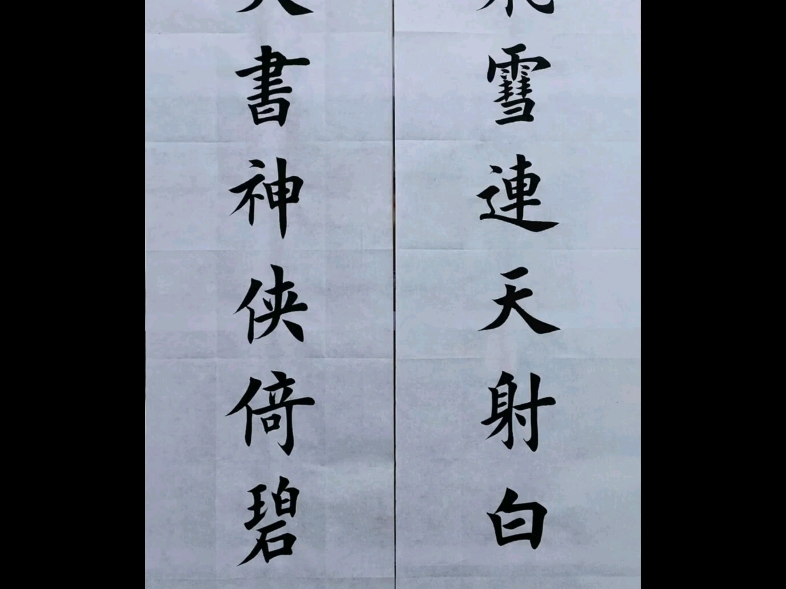 雪連天射白
書神侠倚碧